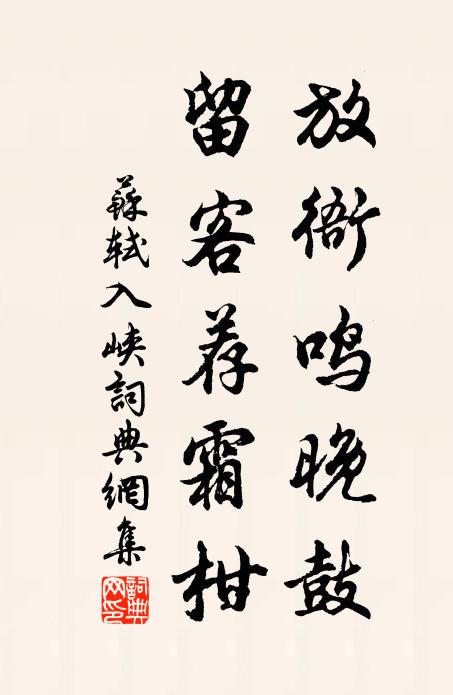 放衙鸣晚鼓
留客荐霜柑
蘇軾入峡詞典網集
詞典网印